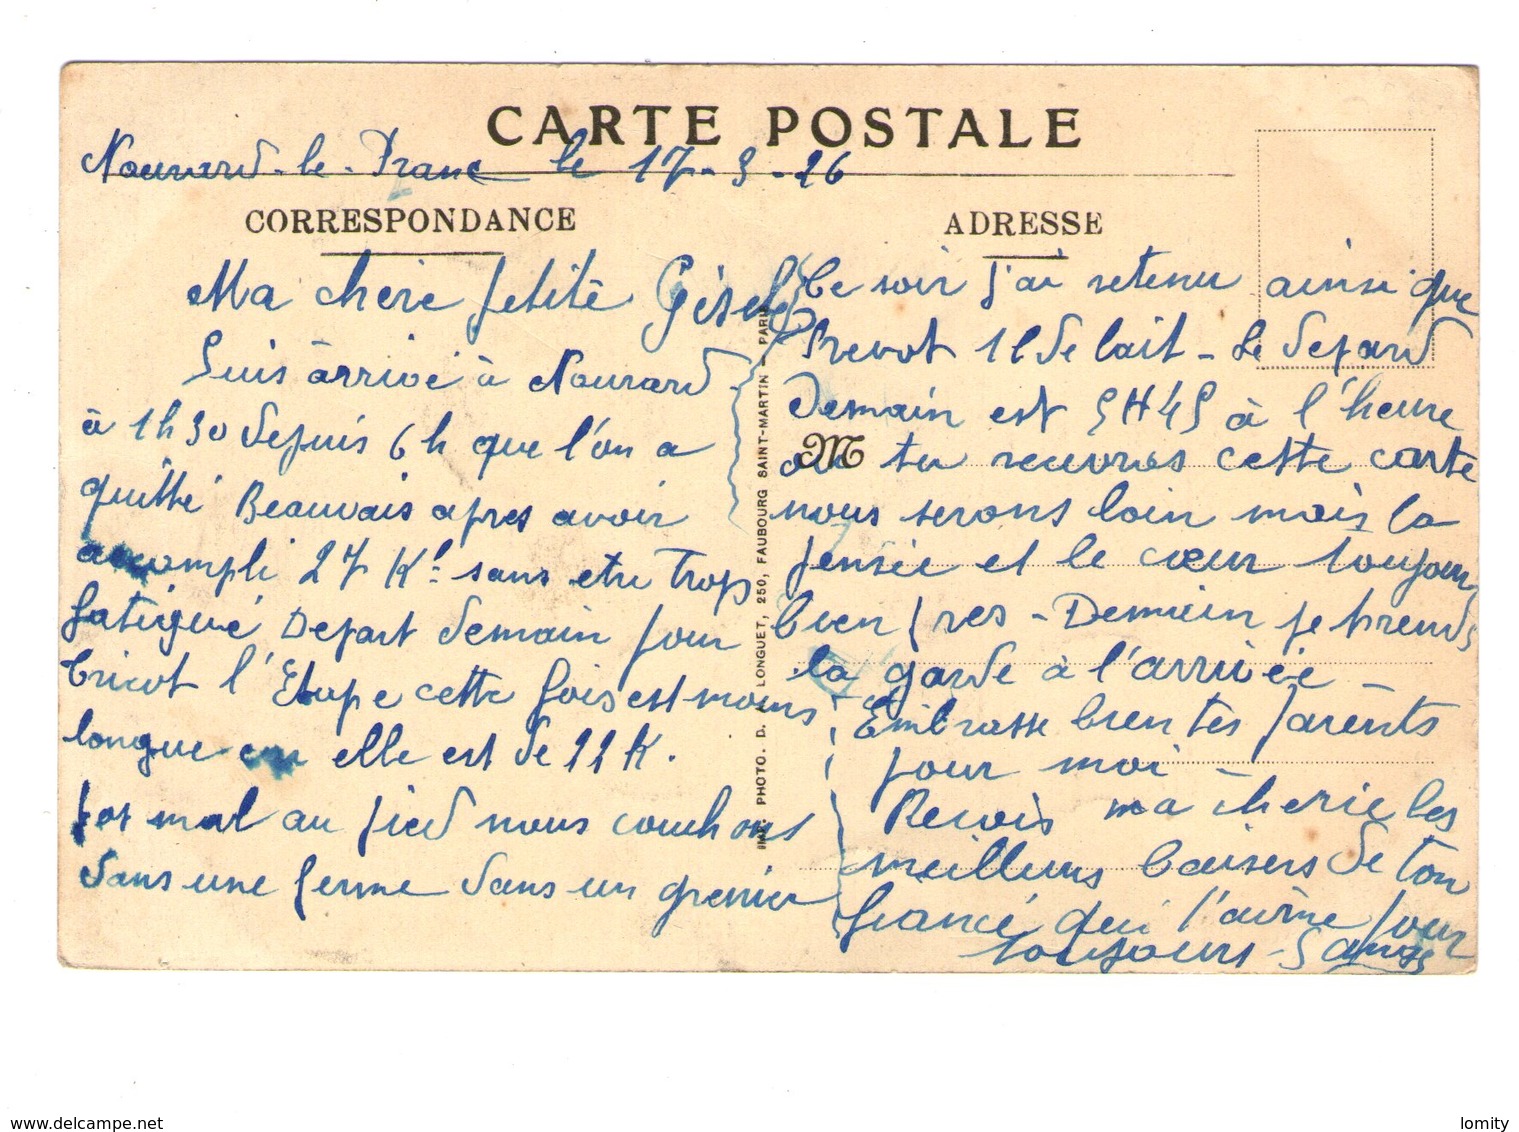 CARTE POSTALE
Nourard-le-Franc le 17-3-26
CORRESPONDANCE
Ma chère petite Gisele
Suis arrivé à Nourard
à 1h30 depuis 6h que l'on a
quitté Beauvais apres avoir
accompli 27 K. sans etre trop
fatigué Depart demain pour
bricot l'Etape cette fois est moins
longue car elle est de 22 K.
pas mal au pied nous couchons
dans une ferme dans un grenier
IMP. PHOTO. D. LONGUET, 250, FAUBOURG SAINT-MARTIN - PARIS
ADRESSE
Ce soir j'ai retenu ainsi que
Prevot 1l de lait - Le depard
Demain est 5H45 à l'heure
M
ou tu recevras cette carte
nous serons loin mais la
pensée et le cœur toujours
bien pres - Demain je prends
la garde à l'arrivée -
Embrasse bien tes parents
pour moi -
Recois ma cherie les
meilleurs baisers de ton
fiancé qui t'aime pour
toujours -
lomity
www.delcampe.net